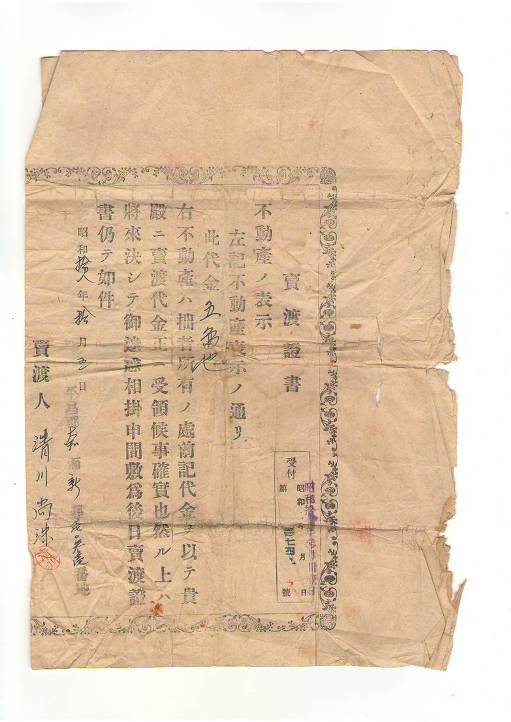 賣渡證書
不動產ノ表示
左記不動產表示ノ通リ
此代金
右不動產ハ拙者所有ノ處前記代金ヲ以テ貴
殿ニ賣渡代金正ニ受領候事確實也然ル上ハ
將來決シテ御迷惑相掛申間敷爲後日賣渡證
書仍テ如件
昭和拾八年拾月五日
番地
賣渡人 清川尚洙
受付
昭和 年 月 日
第 號